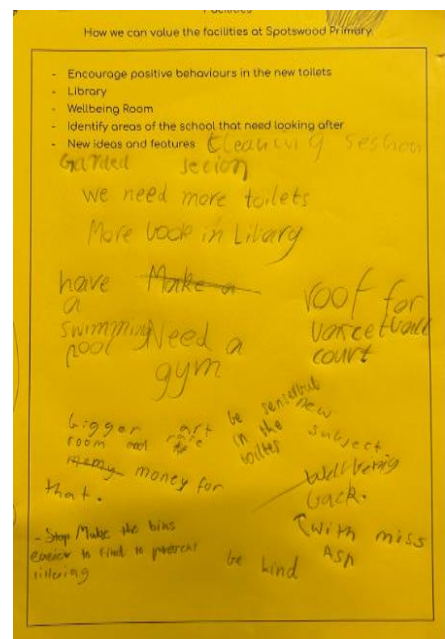 Facilities
How we can value the facilities at Spotswood Primary.
- Encourage positive behaviours in the new toilets
- Library
- Wellbeing Room
- Identify areas of the school that need looking after
- New ideas and features Cleaning session
Garded secion
we need more toilets
More book in Libary
have Make a
a
swimming
pool
Need a
gym
roof for
court
bigger art
room and more
money for
that.
be
in the
toiltes
new
subject
Wellbeinig
back.
with miss
Ash
- Stop/Make the bins
easier to find to prevent
littering
be kind